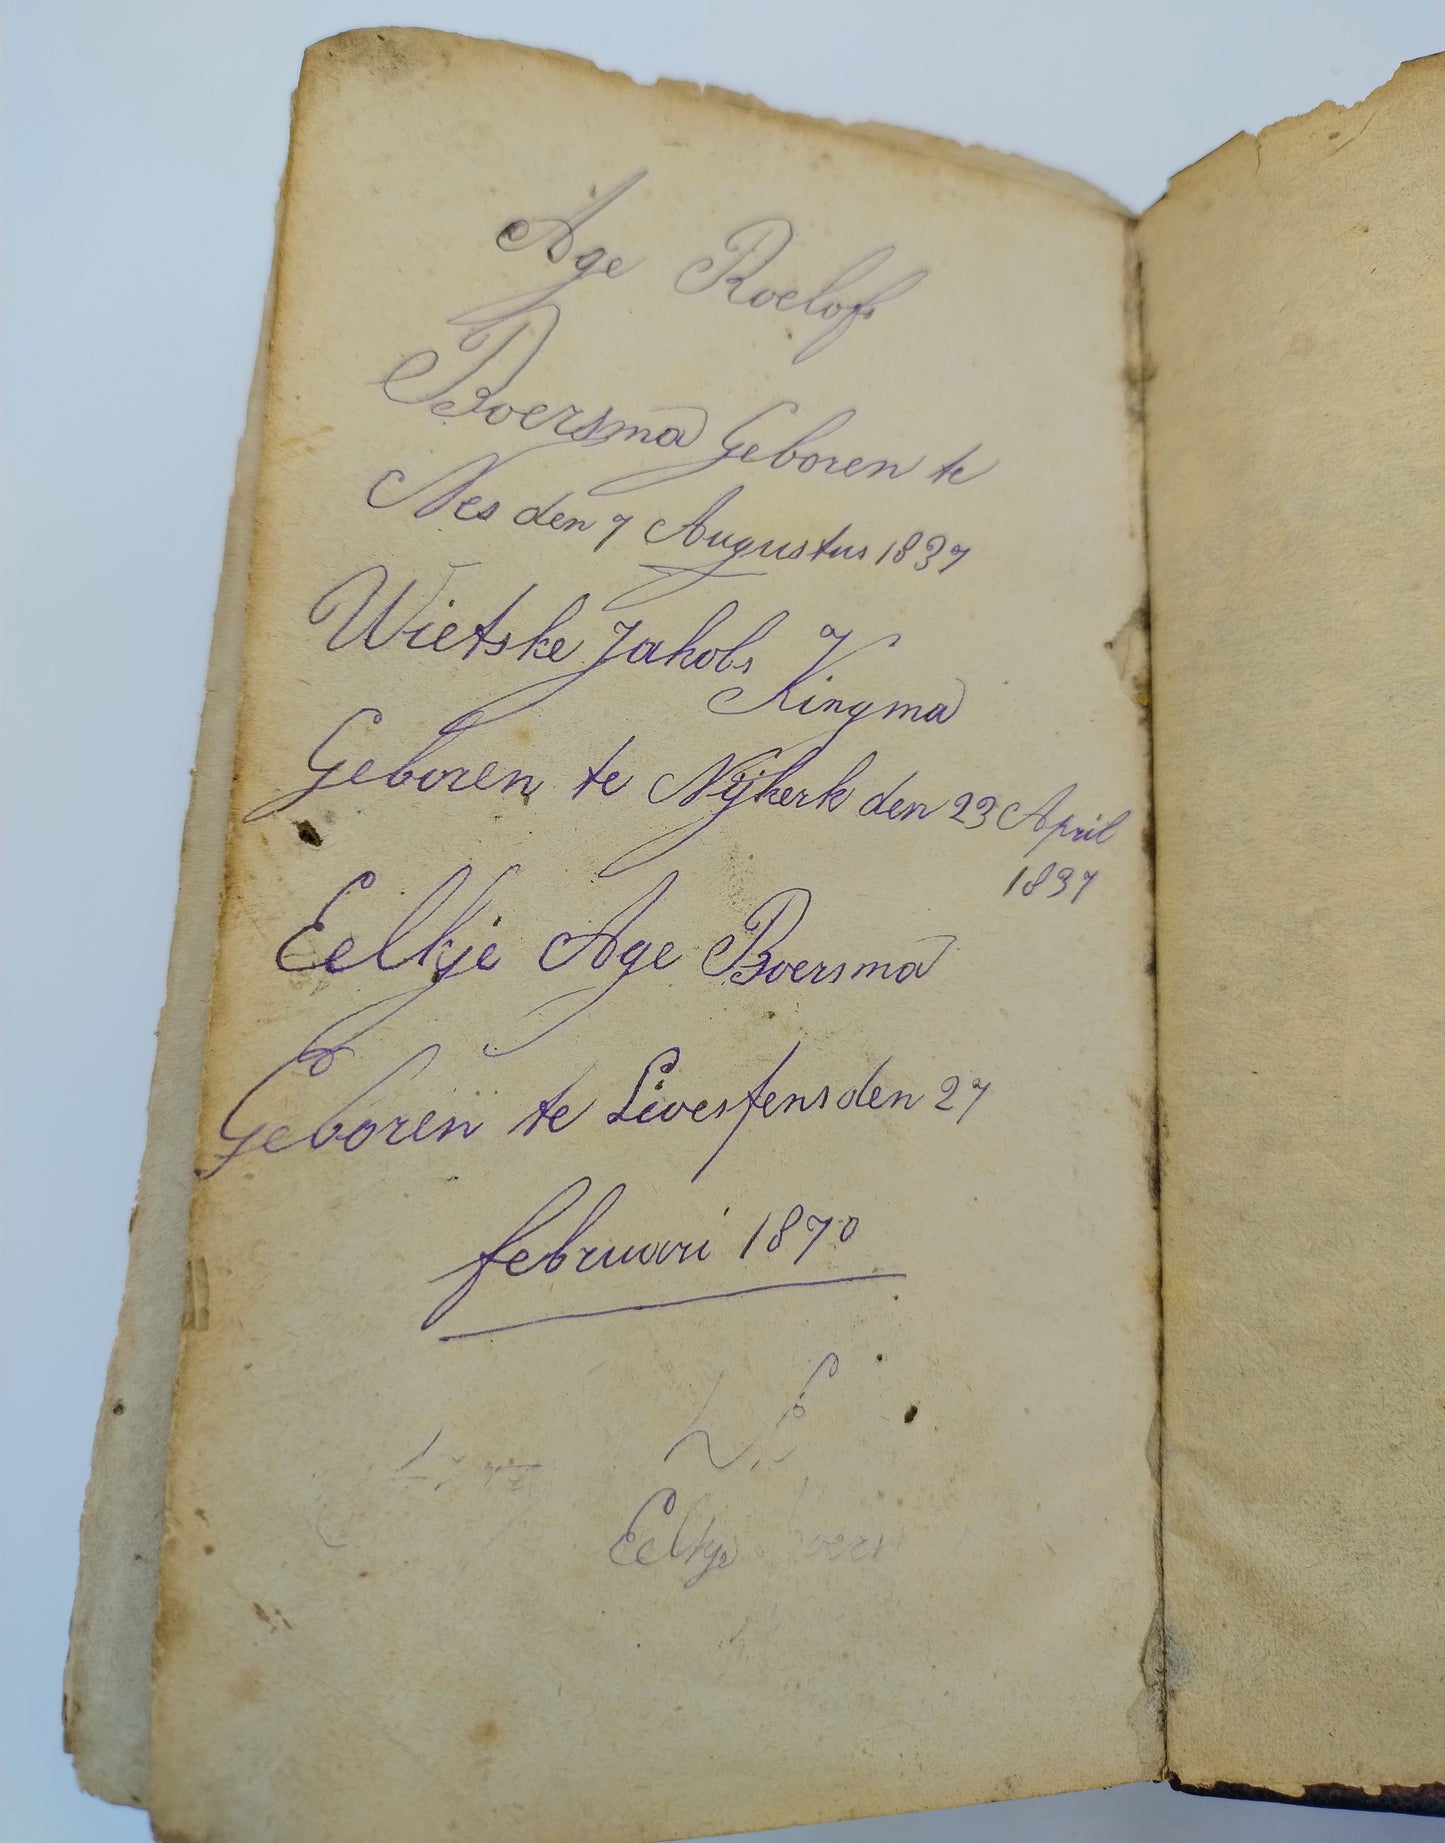 Age Roelofs
Boersma Geboren te
Nes den 7 Augustus 1837
Wietske Jakobs
Kingma
Geboren te Nijkerk den 23 April
1837
Eelkje Age Boersma
Geboren te Lioessens den 27
februari 1870
Eelkje